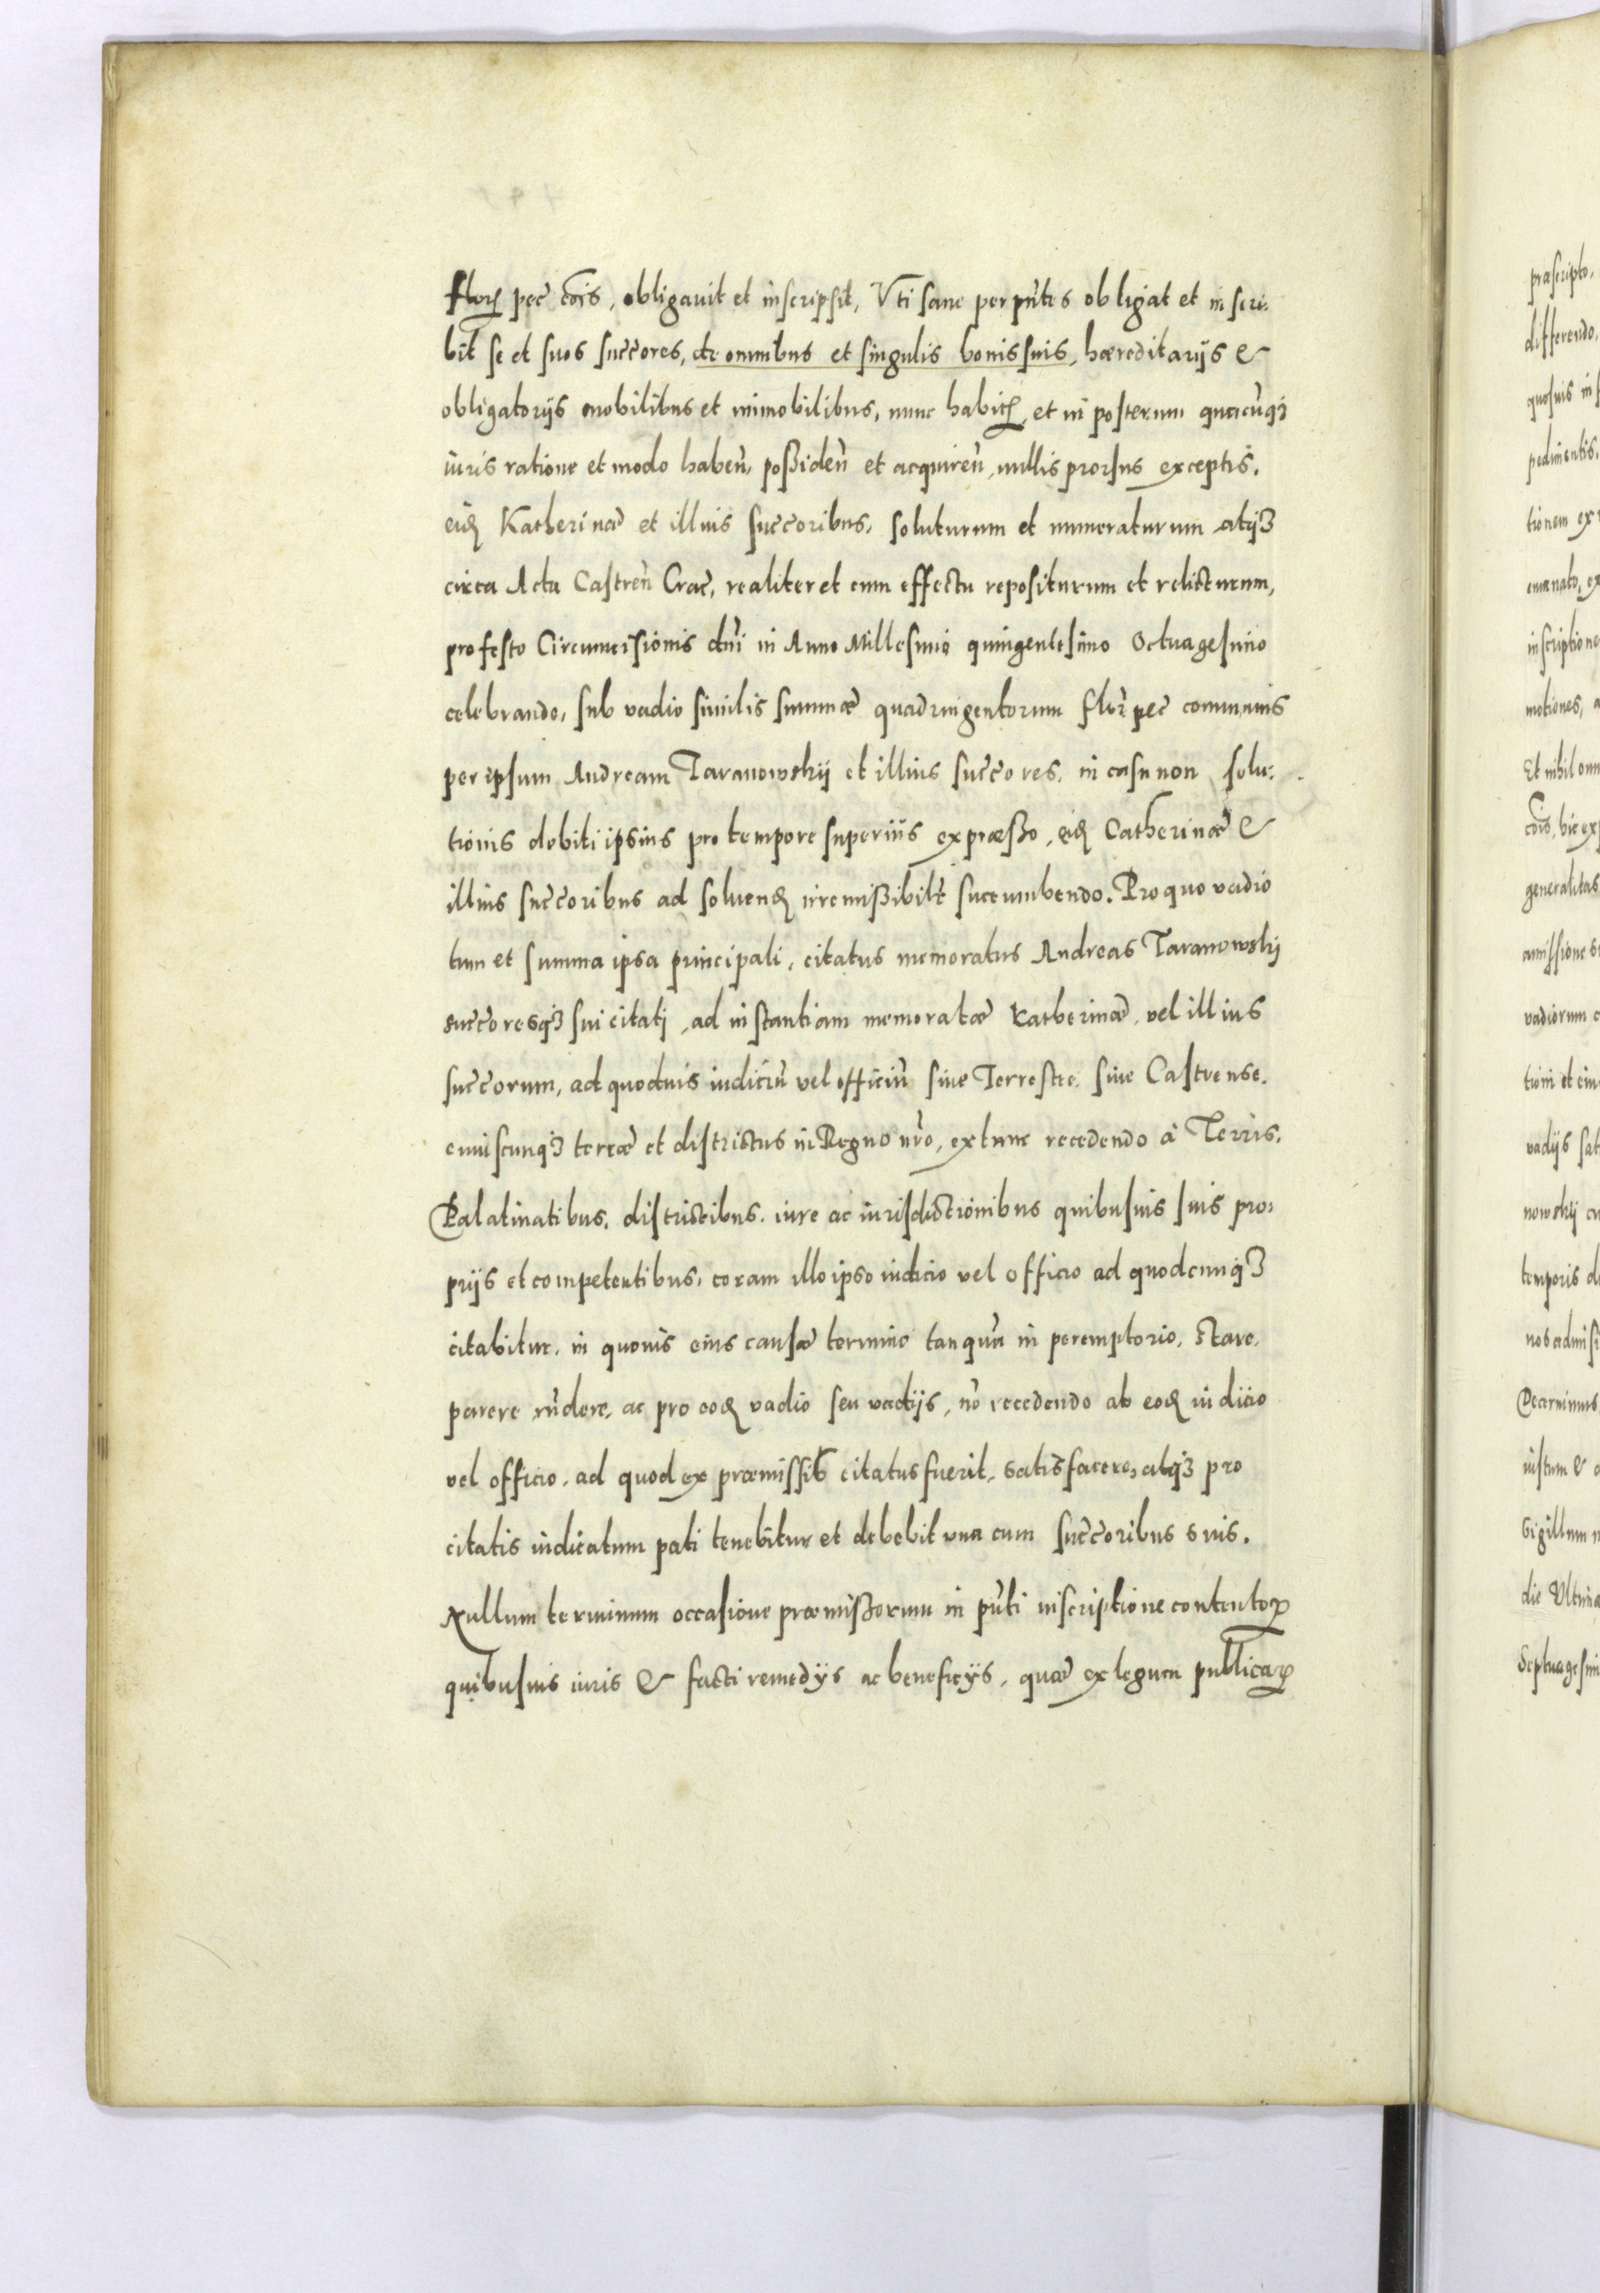 floren pec cois, obligauit et inscripsit, Vti sane per pñtes obligat et inscri-
bit se et suos succores, de omnibus et singulis bonis suis, hæreditarijs &
obligatorijs mobilibus et immobilibus, nunc habit, et in posterum quacuq3
iuris ratione et modo haben, possiden et acquiren, nullis prorsus exceptis.
eid Katherinæ et illius succoribus, soluturum et numeraturum atq3
circa Acta Castren Crac, realiter et cum effectu repositurum et relicturum,
pro festo Circumcisionis dni in Anno Millesimo quingentesimo Octuagesimo
celebrando, sub vadio similis summæ quadringentorum flor pec communis
per ipsum Andream Taranowskij et illius succores, in casu non solu-
tionis debiti ipsius pro tempore superius expræsso, eid Catherinæ &
illius succoribus ad soluend irremissibilr succumbendo. Pro quo vadio
tum et summa ipsa principali, citatus memoratus Andreas Taranowskij
succoresq3 sui citati, ad instantiam memoratæ Katherinæ, vel illius
succorum, ad quoduis iudiciu vel officiu siue Terrestre, siue Castrense.
cuiuscunq3 terræ et districtus in Regno nro, ex tunc recedendo à Terris.
Palatinatibus, districtibus, iure ac iurisdictionibus quibusuis suis pro-
prijs et competentibus, coram illo ipso iudicio vel officio ad quodcunq3
citabitur, in quouis eius causæ termino tanqua in peremptorio, stare,
parere rñdere, ac pro eod vadio seu vadijs, no recedendo ab eod iudicio
vel officio, ad quod ex præmissib citatus fuerit, satisfacere, atq3 pro
citatis iudicatum pati tenebitur et debebit vna cum succoribus suis.
Nullum terminum occasione præmissorum in pñti inscriptione contentor
quibusuis iuris & facti remedijs ac beneficijs, quæ ex legum publicar
præscripto,
differendo,
quosuis in
pedimentis,
tionem ex
emanato, ex
inscriptione
motiones, a
Et nihilomi
cois, hic exp
generalitas
amissione
vadiorum
tioni et eiu
vadijs sat
nowskij
temporis
nos admisi
Decernimus
iustum &
Sigillum
die Vltima
Septuagesim